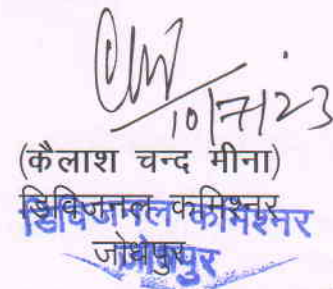 10/7/23
(कैलाश चन्द मीना)
डिविजनल कमिश्नर
डिविजनल कमिश्नर
जोधपुर
जोधपुर